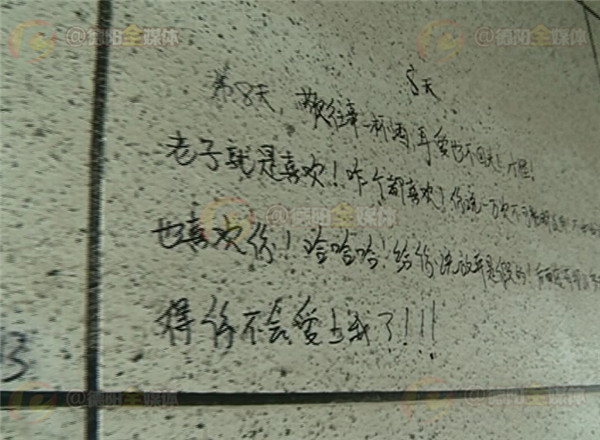 @德阳全媒体
@德阳全媒体
8天
第8天,敬往事一杯酒,再爱也不回头
老子就是喜欢!咋个都喜欢!你说一万次不可能
@德阳全媒体
也喜欢你!哈哈哈!给你说放弃是假的!
得你不会爱上我了!!!
13
@德阳全媒体
@德阳全媒体